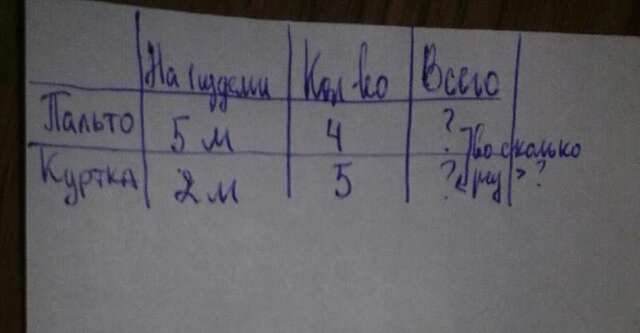 На 1 изделие Кол-во Всего
Пальто 5 м 4 ?
во сколько
Куртка 2 м 5 ? раз > ?